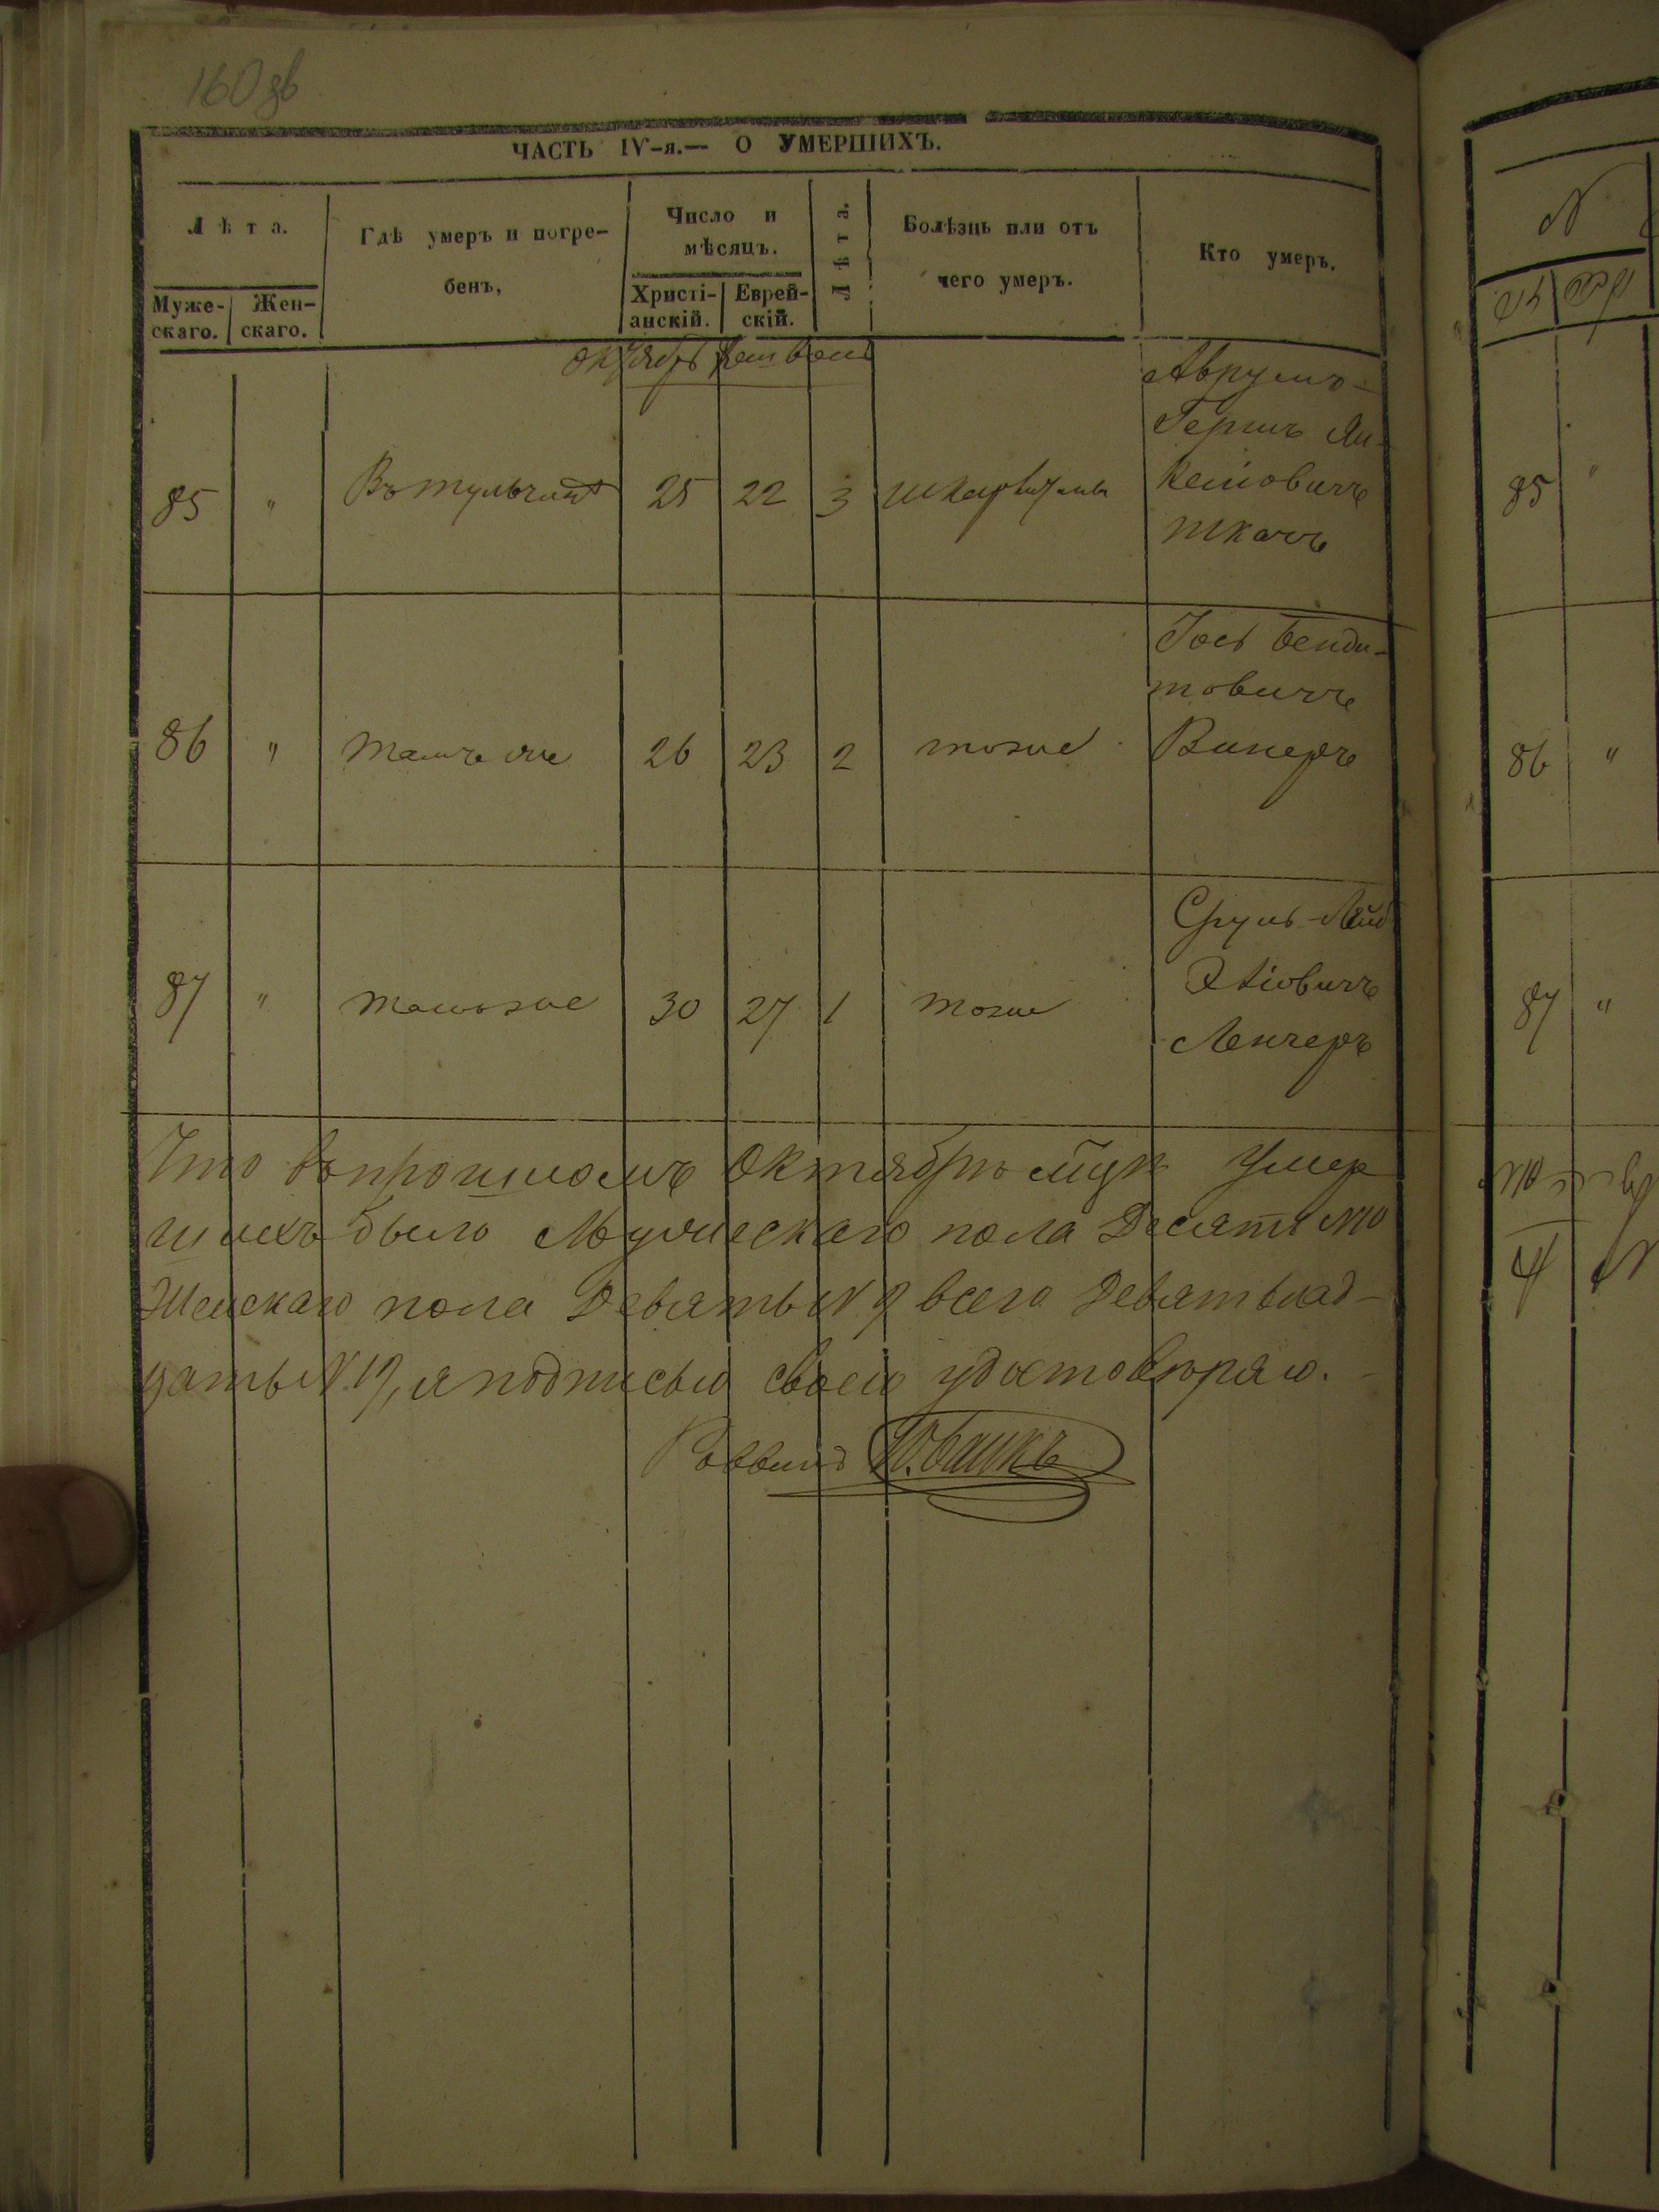 160 зв
ЧАСТЬ IV-я.— О УМЕРШИХЪ.
Лѣта.
Муже-
скаго.
Жен-
скаго.
Гдѣ умеръ и погре-
бенъ,
Число и
мѣсяцъ.
Христі-
анскій.
Еврей-
скій.
Лѣта.
Болѣзнь или отъ
чего умеръ.
Кто умеръ.
Октябрь Хешвень
85 " Въ тульчинѣ 25 22 3 шкарлятина
Аврумъ-
Гершъ Ян-
келіовичъ
Ткачъ
86 " тамъ же 26 23 2 тоже
Іось Бенди-
товичъ
Винеръ
87 " тамъже 30 27 1 тоже
Сруль-Лейб
Эліовичъ
Ленчеръ
Что въ прошломъ Октябрѣ м͠цѣ умер
шихъ было Мужескаго пола Десять №10
Женскаго пола Девять № 9 всего Девятьнад-
цать №. 19, я подписью своею удостовѣряю.
Раввинъ
N
85 "
86 "
87 "